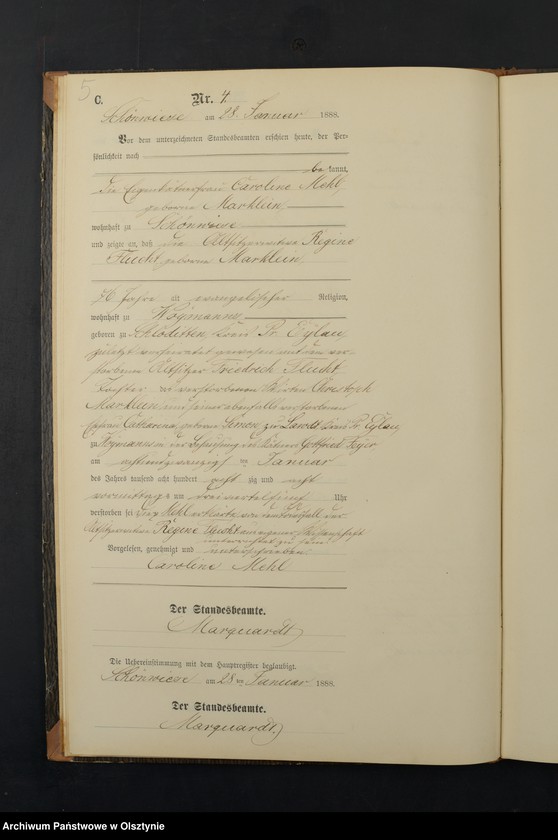 5
C. Nr. 4.
Schönwiese am 28. Januar 1888.
Vor dem unterzeichneten Standesbeamten erschien heute, der Per-
sönlichkeit nach
be kannt,
die Eigenkäthnerfrau Caroline Mehl
geborne Marklein
wohnhaft zu Schönwiese
und zeigte an, daß die Altsitzerwittwe Regine
Flucht, geborne Marklein
Jahre alt evangelischer Religion,
wohnhaft zu Woymanns
geboren zu Schloditten, Kreis Pr. Eylau
zuletzt verheiratet gewesen mit dem ver-
storbenen Altsitzer Friedrich Flucht
Tochter der verstorbenen Hirten Christoph
Marklein und seiner ebenfalls verstorbenen
Ehefrau Catharina, geborne Simon, zu Kreis Pr. Eylau
zu Woymanns in der Behausung des Gottfried
am achtundzwanzigsten Januar
des Jahres tausend acht hundert acht zig und acht
vormittags um dreiviertelfünf Uhr
verstorben sei. Die Mehl erklärte von dem Todesfall der
Altsitzerwittwe Regine Flucht aus eigener Wissenschaft
unterrichtet zu sein.
Vorgelesen, genehmigt und unterschrieben
Caroline Mehl
Der Standesbeamte.
Marquardt
Die Uebereinstimmung mit dem Hauptregister beglaubigt.
Schönwiese am 28 ten Januar 1888.
Der Standesbeamte.
Marquardt
Archiwum Państwowe w Olsztynie